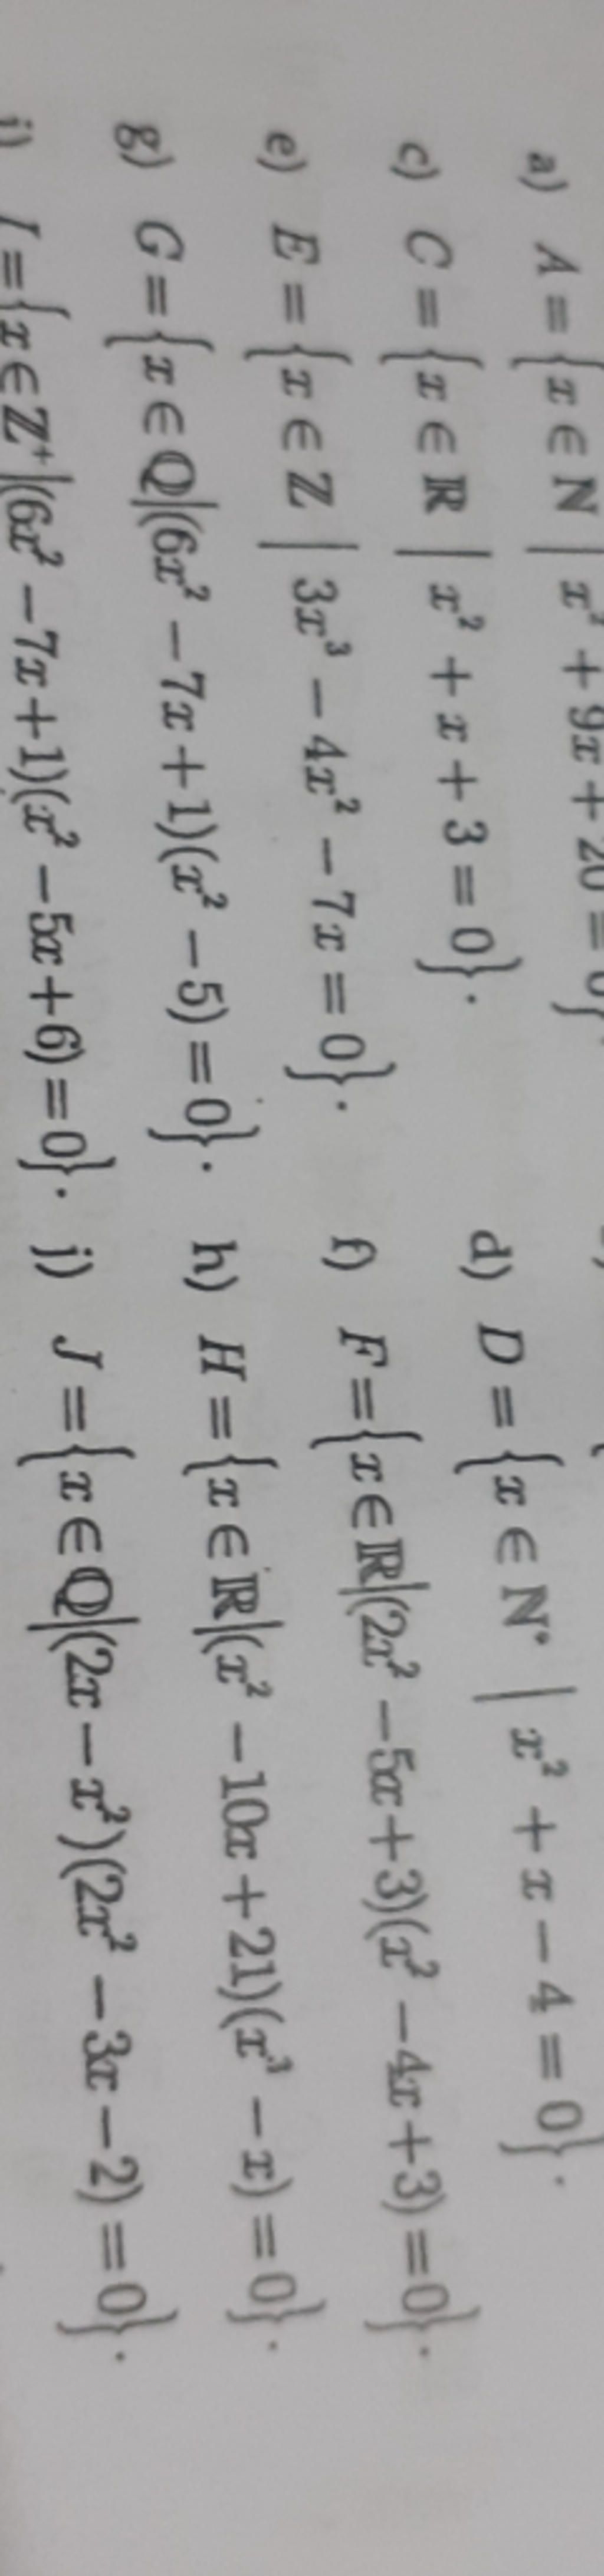 a) A = {x ∈ ℕ | x² + 9x + 20 = 0}.
c) C = {x ∈ ℝ | x² + x + 3 = 0}. d) D = {x ∈ ℕ* | x² + x − 4 = 0}.
e) E = {x ∈ ℤ | 3x³ − 4x² − 7x = 0}. f) F = {x ∈ ℝ|(2x² − 5x + 3)(x² − 4x + 3) = 0}.
g) G = {x ∈ ℚ|(6x² − 7x + 1)(x² − 5) = 0}. h) H = {x ∈ ℝ|(x² − 10x + 21)(x³ − x) = 0}.
i) I = {x ∈ ℤ⁺|(6x² − 7x + 1)(x² − 5x + 6) = 0}. j) J = {x ∈ ℚ|(2x − x²)(2x² − 3x − 2) = 0}.